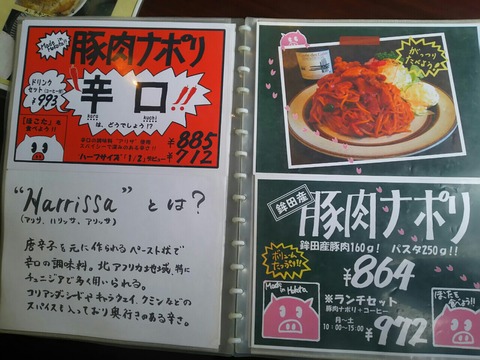 Made in Hokota!!
豚肉ナポリ
ドリンク
セット(コーヒー他)
¥993
辛口!!
から くち
は、どうでしょう!?
「ほこた」を
食べよう!!
¥885
辛口の調味料 "アリサ" 使用
スパイシーで深みのある辛さ!!
ハーフサイズ「1/2」デビュー
¥712
"Harrissa" とは?
(アリサ、ハリッサ、アリッサ)
唐辛子を元に作られるペースト状で
辛口の調味料。北アフリカ地域、特に
チュニジアで多く用いられる。
コリアンダーシードやキャラウェイ、クミンなどの
スパイスも入っており奥行きのある辛さ。
がっつり
たべよう
鉾田産
豚肉ナポリ
鉾田産豚肉160g! パスタ250g!!
ボリューム
たっぷり!!
¥864
Made in Hokota
※ランチセット
豚肉ナポリ+コーヒー
月〜土
10:00〜15:00
¥972
「ほこた」を
食べよう!!